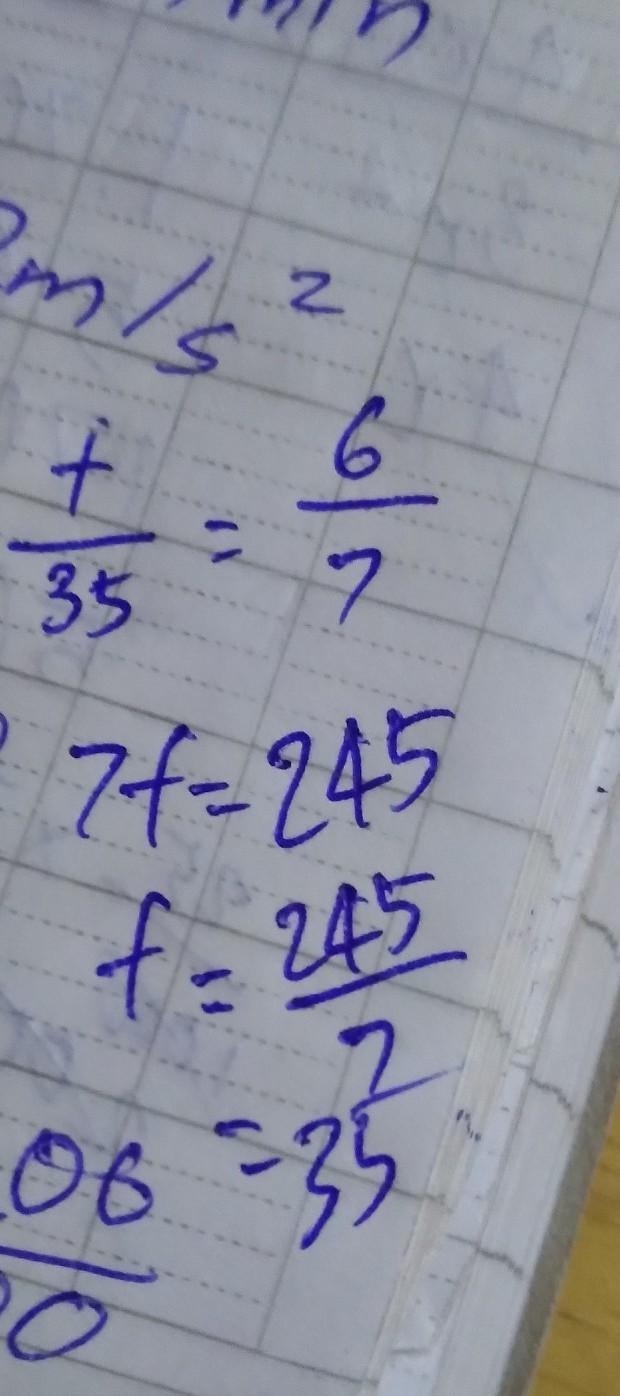 min
m/s²
f/35 = 6/7
7f = 245
f = 245/7
= 35
06
0